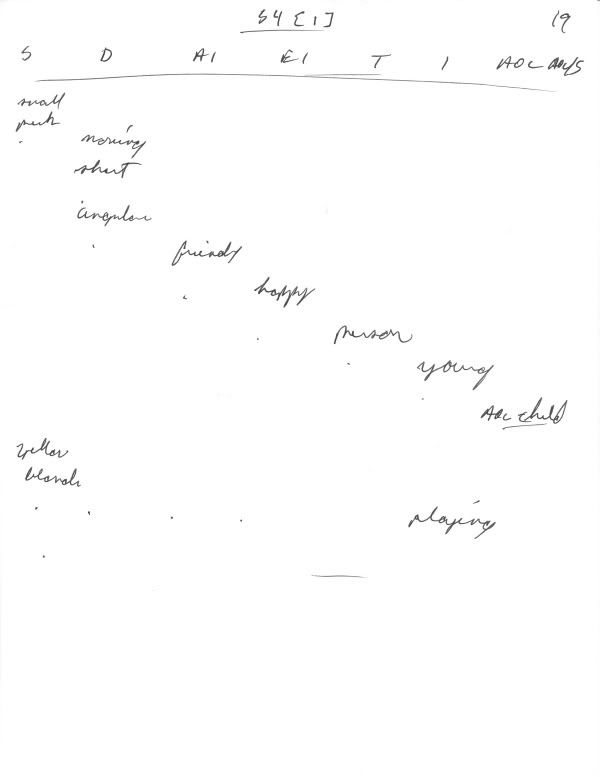 S4 [1] 19
S D AI EI T I AOL AOL/S
small
moving
short
angular
friendly
happy
person
young
AOL child
yellow
blonde
playing